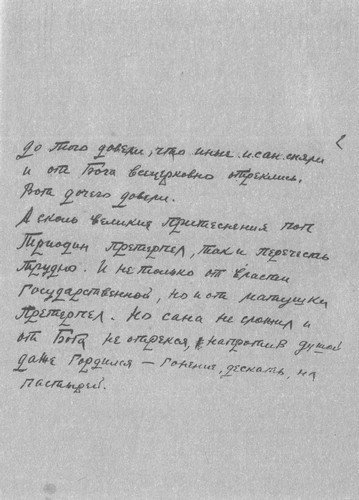 до того довели, что иные и сан сняли
и от Бога всецерковно отреклись.
Вот до чего довели.
А сколь великия притеснения поп
Териодин претерпел, так и перечесть
трудно. И не только от власти
государственной, но и от матушки
претерпел. Но сана не сложил и
от Бога не отрекся, напротив душой
даже гордился — гонение, дескать, на
пастырей.